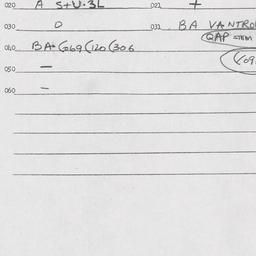 020 A S+U·3L 021 +
030 0 031 BA VANTRO
QAP STEM
040 BA+ (269 (120 (306
050 —
060 —